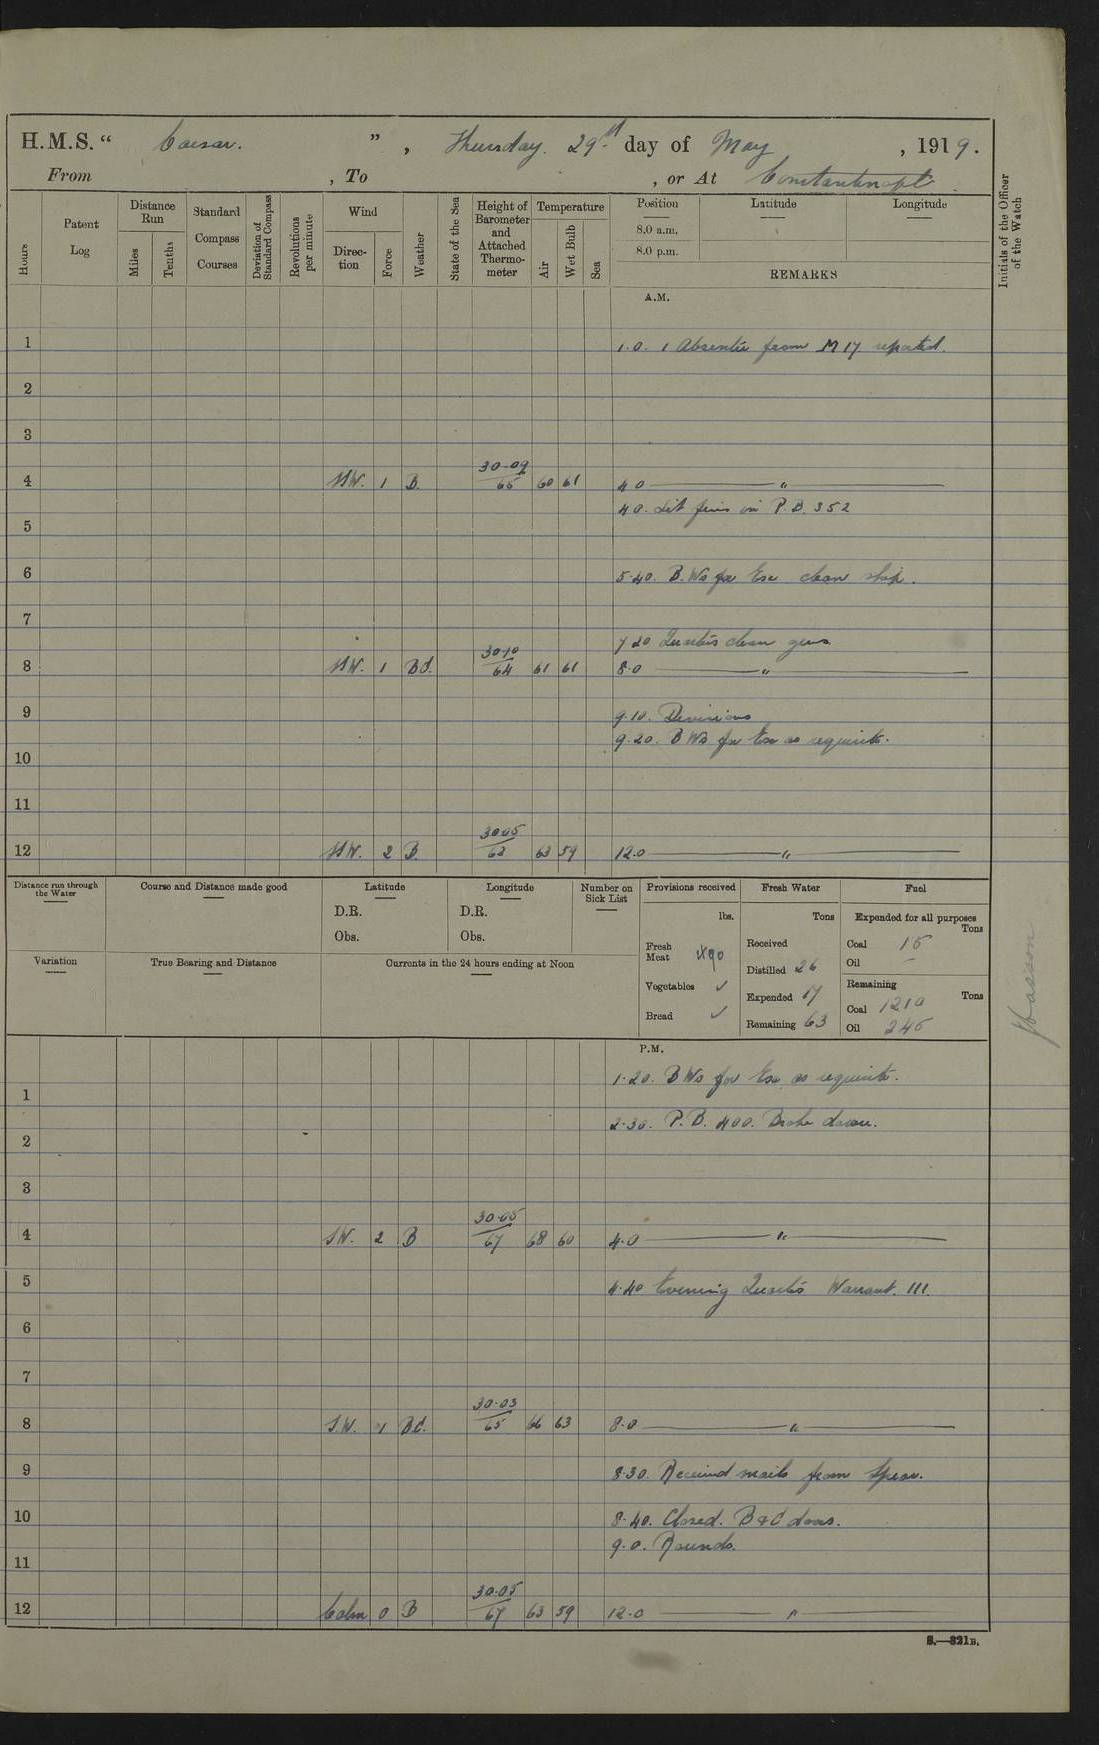 H.M.S. “ Caesar. ” , Thursday. 29th day of May , 1919.
From , To , or At Constantinople
Hours
Patent Log
Distance Run
Miles
Tenths
Standard Compass Courses
Deviation of Standard Compass
Revolutions per minute
Wind
Direction
Force
Weather
State of the Sea
Height of Barometer and Attached Thermometer
Temperature
Air
Wet Bulb
Sea
Position
8.0 a.m.
8.0 p.m.
Latitude
Longitude
REMARKS
Initials of the Officer of the Watch
A.M.
1 1.0. 1 Absentee from M 17 reported.
2
3
4 NW. 1 B. 30.09 65 60 61 4.0 "
4.0. Lit fires in P.B. 352
5
6 5.40. B.Ws for Exe clean ship.
7
7.20 Quarters clean guns
8 NW. 1 BC. 30.10 64 61 61 8.0 "
9 9.10. Divisions
9.20. B Ws for Exe as requisite.
10
11
12 NW. 2 B. 30.05 62 63 59 12.0 "
Distance run through the Water
Course and Distance made good
Latitude
D.R.
Obs.
Longitude
D.R.
Obs.
Number on Sick List
Provisions received
lbs.
Fresh Meat 490
Vegetables ✓
Bread ✓
Fresh Water
Tons
Received
Distilled 26
Expended 17
Remaining 63
Fuel
Expended for all purposes
Tons
Coal 15
Oil –
Remaining
Tons
Coal 1210
Oil 245
Variation
True Bearing and Distance
Currents in the 24 hours ending at Noon
P.M.
1.20. B Ws for Exe as requisite.
1
2.30. P.B. 400. Broke down.
2
3
4 SW. 2 B 30.05 67 68 60 4.0 "
5 4.40 Evening Quarters Warrant. 111.
6
7
8 S.W. 1 BC. 30.03 65 66 63 8.0 "
9 8.30. Received mails from Spear.
10 8.40. Closed. B & C doors.
9.0. Rounds.
11
12 Calm 0 B 30.05 67 63 59 12.0 "
S.—321B.